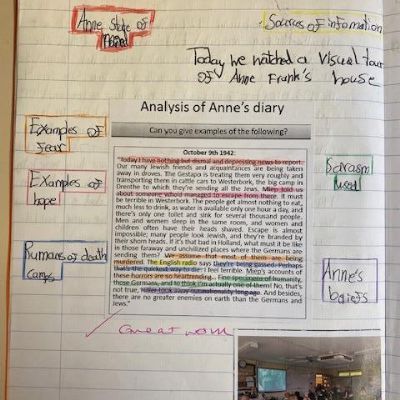 Anne State of
Mind
Sources of information
Today we watched a visual tour
of Anne Frank's house
Analysis of Anne's diary
Can you give examples of the following?
Examples of
fear
Examples of
hope
Rumans of death
camps
October 9th 1942:
"Today I have nothing but dismal and depressing news to report.
Our many Jewish friends and acquaintances are being taken
away in droves. The Gestapo is treating them very roughly and
transporting them in cattle cars to Westerbork, the big camp in
Drenthe to which they're sending all the Jews. Miep told us
about someone who'd managed to escape from there. It must
be terrible in Westerbork. The people get almost nothing to eat,
much less to drink, as water is available only one hour a day, and
there's only one toilet and sink for several thousand people.
Men and women sleep in the same room, and women and
children often have their heads shaved. Escape is almost
impossible; many people look Jewish, and they're branded by
their shorn heads. If it's that bad in Holland, what must it be like
in those faraway and uncivilized places where the Germans are
sending them? We assume that most of them are being
murdered. The English radio says they're being gassed. Perhaps
that's the quickest way to die. I feel terrible. Miep's accounts of
these horrors are so heartrending... Fine specimens of humanity,
those Germans, and to think I'm actually one of them! No, that's
not true, Hitler took away our nationality long ago. And besides,
there are no greater enemies on earth than the Germans and
Jews."
Sarasm
used
Anne's
beliefs
Great